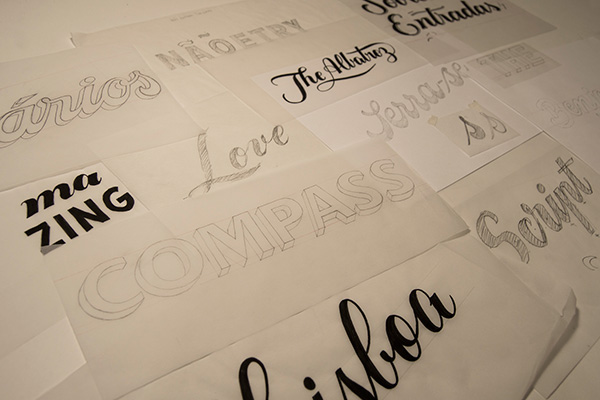 NÃOETRY
Entradas
The Albatroz
ários
ss
Love
ma
ZING
COMPASS
Script
Lisboa